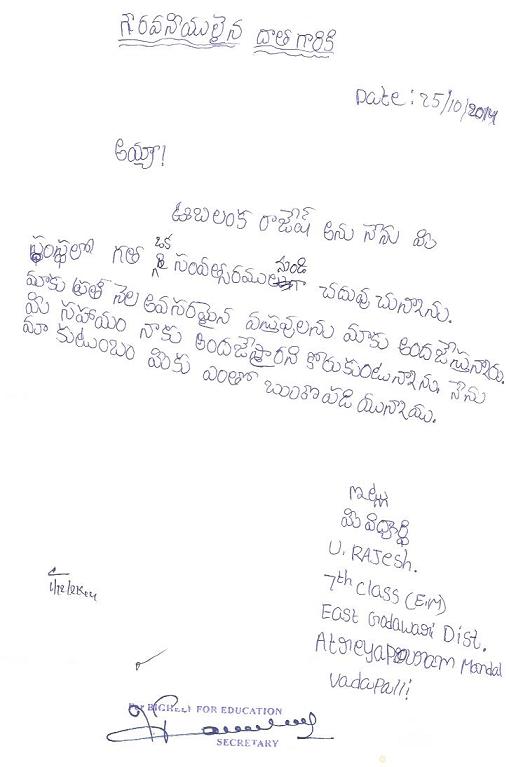 గౌరవనీయులైన దాత గారికి
Date: 25/10/2014
అయ్యా!
ఊబలంక రాజేష్ అను నేను మీ
సంస్థలో గత ఒక సంవత్సరము నుండి చదువు చున్నాను.
మాకు ప్రతి నెల అవసరమైన వస్తువులను మాకు అందజేస్తున్నారు.
మీ సహాయం నాకు అందజేస్తారని కోరుకుంటున్నాను. నేను
మా కుటుంబం మీకు ఎంతో బుణపడి యున్నాము.
ఇట్లు
మీ విద్యార్థి
U. RAJesh.
7th class (E.M)
East Godawari Dist.
Atreyapuram Mandal
Vadapalli
For BIGHelp FOR EDUCATION
SECRETARY